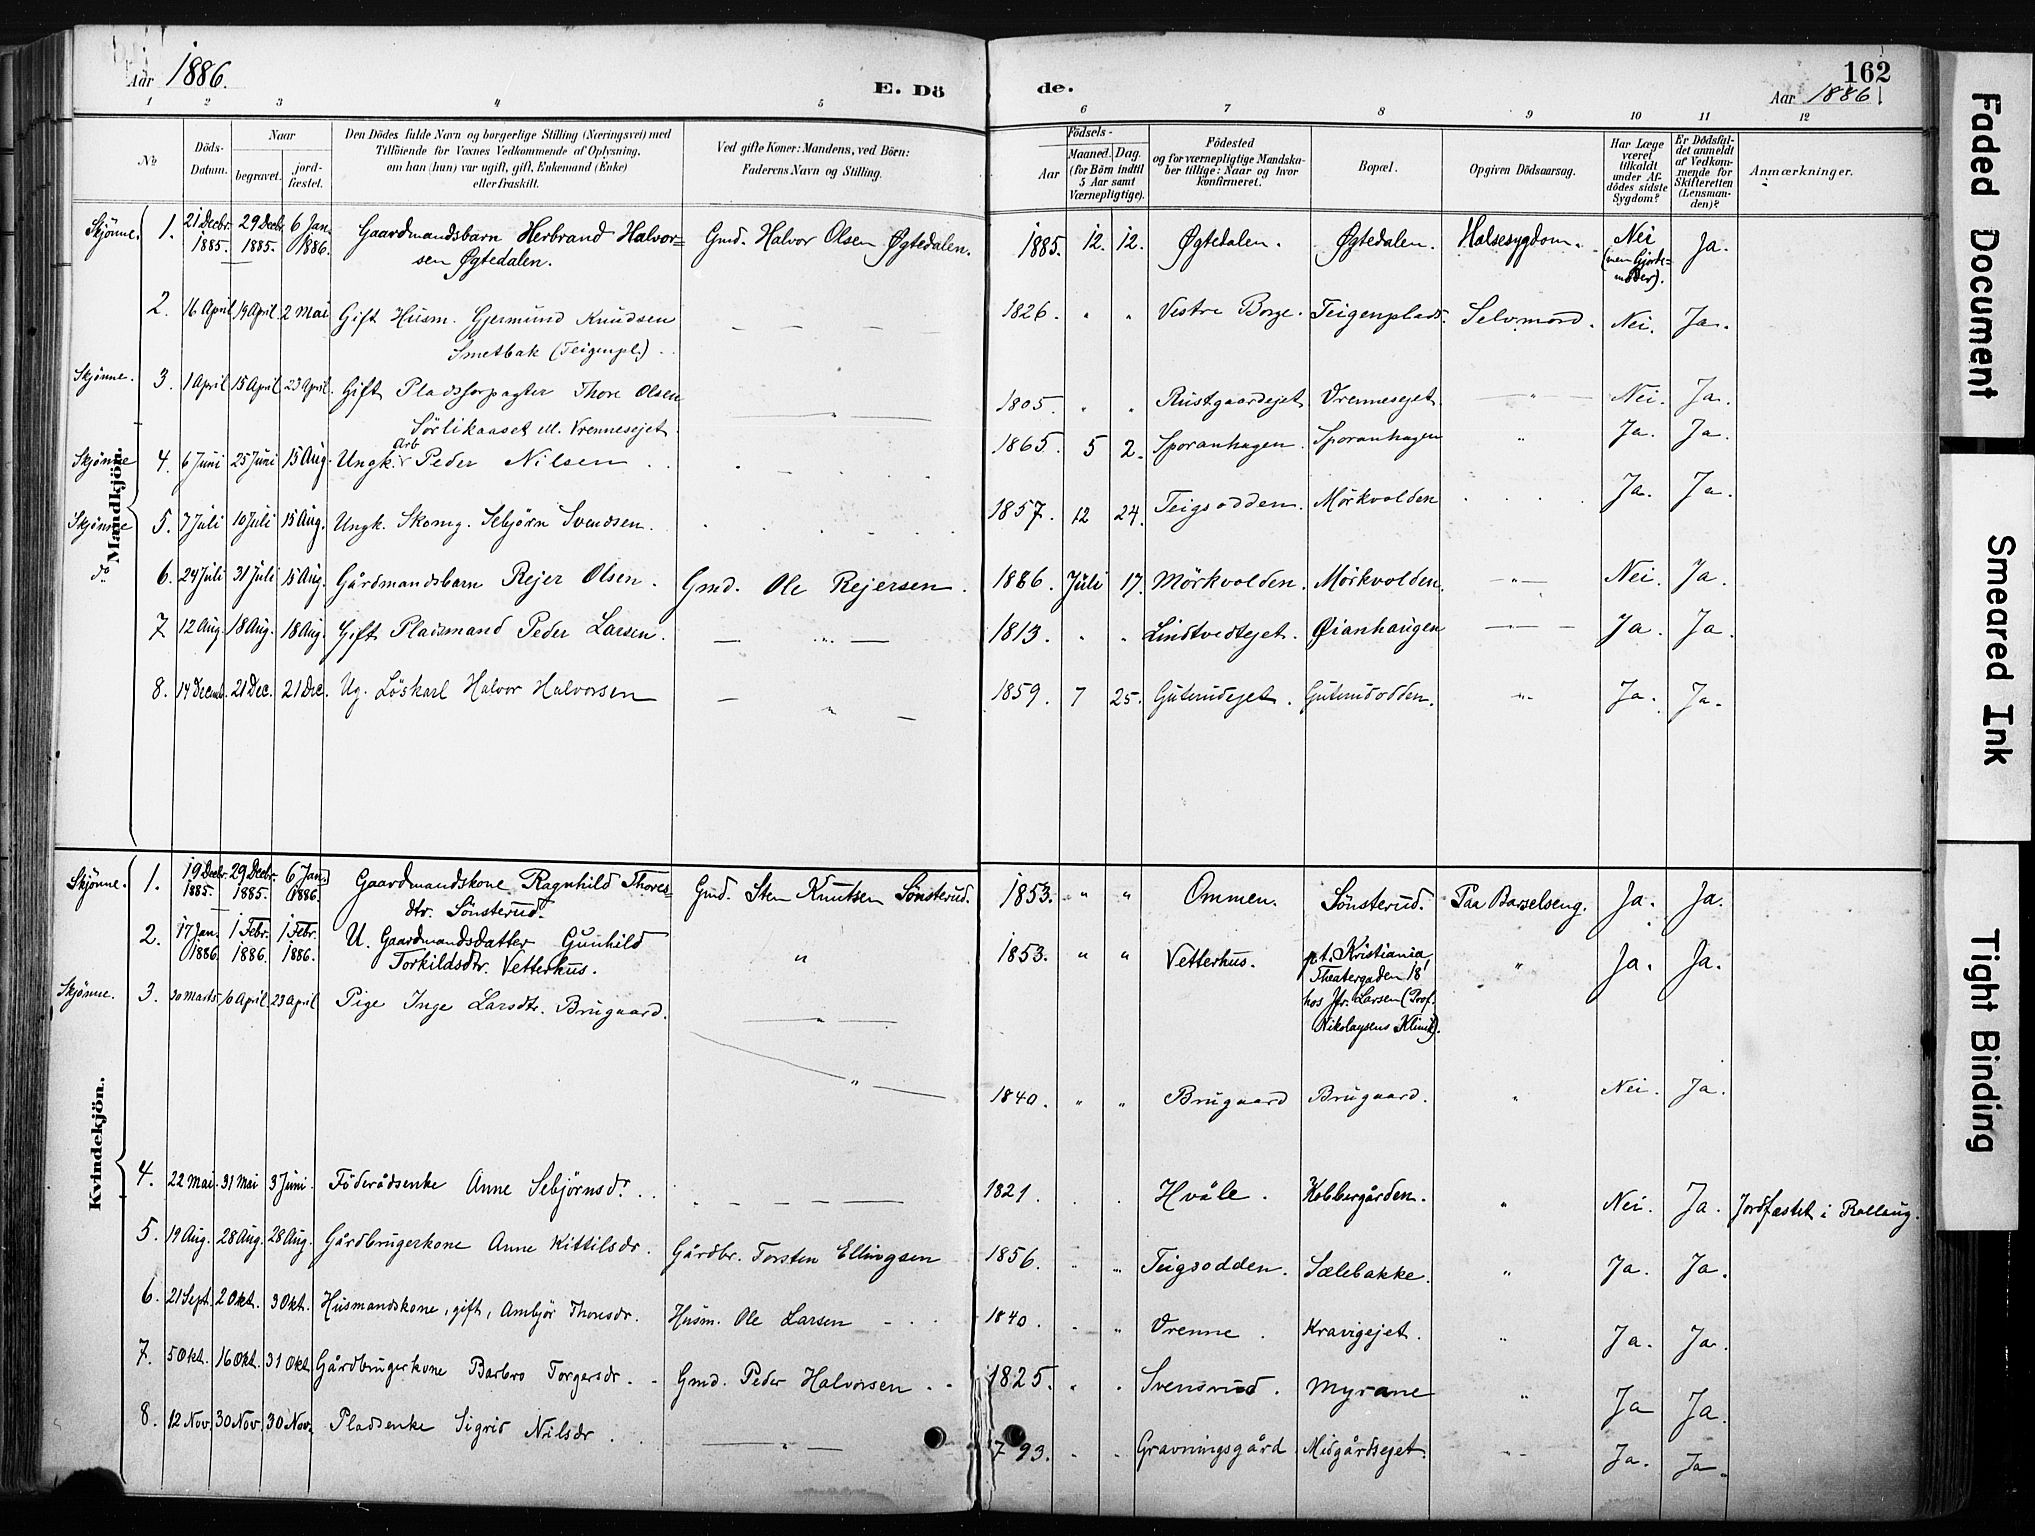 Aar 1886. E. Dö de. 162
Aar 1886
1 2 3 4 5 6 7 8 9 10 11 12
No
Döds-
Datum.
Naar
begravet.
jord-
fæstet.
Den Dödes fulde Navn og borgerlige Stilling (Næringsvei) med
Tilföiende for Voxnes Vedkommende af Oplysning,
om han (hun) var ugift, gift, Enkemand (Enke)
eller fraskilt.
Ved gifte Koner: Mandens, ved Börn:
Faderens Navn og Stilling.
Födsels-
Aar
Maaned. Dag.
(for Börn indtil
5 Aar samt
Værnepligtige).
Födested
og for værnepligtige Mandska-
ber tillige: Naar og hvor
konfirmeret.
Bopæl.
Opgiven Dödsaarsag.
Har Læge
været
tilkaldt
under Af-
dödes sidste
Sygdom?
Er Dödsfal-
det anmeldt
af Vedkom-
mende for
Skifteretten
(Lensman-
den)?
Anmærkninger.
Mandkjön.
Skjønne. 1. 21 Decbr. 1885. 29 Decb. 1885. 6 Jan. 1886. Gaardmandsbarn Herbrand Halvor- Gmd. Halvor Olsen Øgtedalen. 1885. 12. 12. Øgtedalen. Øgtedalen. Halsesygdom. Nei Ja.
sen Øgtedalen. (men Gjorde-
moder).
2. 16 April 19 April. 2 Mai Gift Husm. Gjermund Knudsen — " — 1826. " " Vestre Borge. Teigenplads. Selvmord. Nei. Ja.
Smetbak (Teigenpl.)
Skjønne. 3. 1 April 15 April 23 April. Gift Pladsforpagter Thore Olsen — " — 1805. " " Rustgaardejet Vrennesejet — " — Nei. Ja.
Sörlikaaset ell. Vrennesejet.
Skjønne 4. 6 Juni 25 Juni 15 Aug. Ungk. Arb Peder Nilsen 1865. 5 2. Sporanhagen. Sporanhagen " Ja. Ja.
Skjønne 5. 7 Juli 10 Juli 15 Aug. Ungk. Skomg. Sebjörn Svendsen. 1857. 12 24. Teigsodden. Mörkvolden Ja. Ja.
do. 6. 24 Juli 31 Juli 15 Aug. Gårdmandsbarn Rejer Olsen. Gmd. Ole Rejersen. 1886. Juli 17. Mörkvolden. Mörkvolden. — " — Nei. Ja.
7. 12 Aug. 18 Aug. 18 Aug. Gift Pladsmand Peder Larsen. — " — 1813. " " Lindtvedtejet. Øianhaugen — " — Ja. Ja.
8. 14 Decmb. 21 Dec. 21 Dec. Ug. Löskarl Halvor Halvorsen — " — 1859. 7 25. Guterudejet. Guterudodden. " Ja. Ja.
Kvindekjön.
Skjønne. 1. 19 Decbr. 1885. 29 Decbr. 1885. 6 Jan. 1886. Gaardmandskone Ragnhild Thores- Gmd. Sten Knutsen Sønsterud. 1853. " " Ommen. Sønsterud. Paa Barselseng. Ja. Ja.
dtr. Sønsterud.
2. 17 Jan. 1886 1 Febr. 1886. 1 Febr. 1886. U. Gaardmandsdatter Gunhild " 1853. " " Vetterhus. p.t. Kristiania, " Ja. Ja.
Torkildsdtr. Vetterhus. Theatergaden 18
hos Jfr. Larsen (Prof.
Nikolaysens Klinik).
Skjønne. 3. 30 Marts 10 April 23 April Pige Inge Larsdtr. Brugaard. — " — 1840. " " Brugaard Brugaard. " Nei. Ja.
4. 22 Mai. 31 Mai 3 Juni. Föderådsenke Anne Sebjørnsdr. 1821. Hvåle. Kobbergården. " Nei. Ja. Jordfæstet i Rollaug.
5. 19 Aug. 28 Aug. 28 Aug. Gårdbrugerkone Anne Kittilsdr. Gårdbr. Torsten Ellingsen 1856. " " Teigsodden. Sælebakke. " Ja. Ja.
6. 21 Sept. 2 Okt. 3 Okt. Husmandskone, gift, Ambjör Thoresdr. Husm. Ole Larsen 1840. " " Vrenne. Kravigejet. " Ja. Ja.
7. 5 Okt. 16 Okt. 31 Okt Gårdbrugerkone Barbro Torgersdr. Gmd. Peder Halvorsen 1825. " " Svensrud. Myrane " Ja Ja.
8. 12 Nov. 30 Nov. 30 Nov. Pladsenke Sigrid Nilsdr. — " — 793. " " Gravningsgård Midgårdsejet. " Ja. Ja.
Faded Document
Smeared Ink
Tight Binding